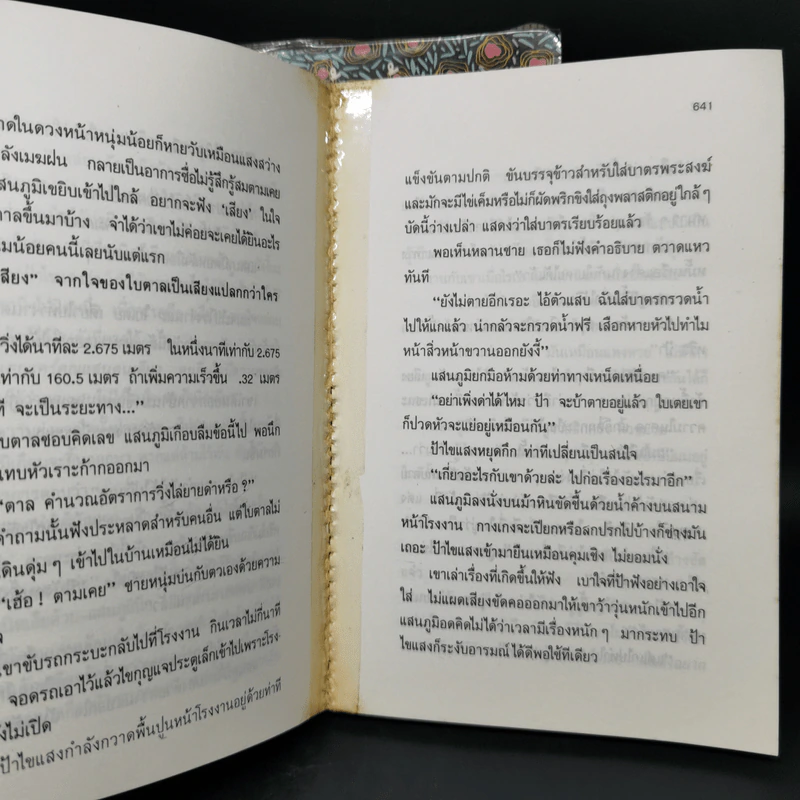 าดในดวงหน้าหนุ่มน้อยก็หายวับเหมือนแสงสว่าง
ลังเมฆฝน กลายเป็นอาการซื่อไม่รู้สึกรู้สมตามเคย
สนภูมิเขยิบเข้าไปใกล้ อยากจะฟัง ‘เสียง’ ในใจ
าลขึ้นมาบ้าง จำได้ว่าเขาไม่ค่อยจะเคยได้ยินอะไร
มน้อยคนนี้เลยนับแต่แรก
สียง” จากใจของใบตาลเป็นเสียงแปลกกว่าใคร
วิ่งได้นาทีละ 2.675 เมตร ในหนึ่งนาทีเท่ากับ 2.675
ท่ากับ 160.5 เมตร ถ้าเพิ่มความเร็วขึ้น .32 เมตร
ที จะเป็นระยะทาง...”
บตาลชอบคิดเลข แสนภูมิเกือบลืมข้อนี้ไป พอนึก
ทบหัวเราะก้ากออกมา
“ตาล คำนวณอัตราการวิ่งไล่ยายดำหรือ ?”
คำถามนั้นฟังประหลาดสำหรับคนอื่น แต่ใบตาลไม่
ดินดุ่ม ๆ เข้าไปในบ้านเหมือนไม่ได้ยิน
“เฮ้อ ! ตามเคย” ชายหนุ่มบ่นกับตวเองด้วยความ
ล
เขาขับรถกระบะกลับไปที่โรงงาน กินเวลาไม่กี่นาที
จอดรถเอาไว้แล้วไขกุญแจประตูเล็กเข้าไปเพราะโรง-
ังไม่เปิด
ป้าไขแสงกำลังกวาดพื้นปูนหน้าโรงงานอยู่ด้วยท่าที
641
แข็งขันตามปกติ ขันบรรจุข้าวสำหรับใส่บาตรพระสงฆ์
และมักจะมีไข่เค็มหรือไม่ก็ผัดพริกขิงใส่ถุงพลาสติกอยู่ใกล้ ๆ
บัดนี้ว่างเปล่า แสดงว่าใส่บาตรเรียบร้อยแล้ว
พอเห็นหลานชาย เธอก็ไม่ฟังคำอธิบาย ตวาดแหว
ทันที
“ยังไม่ตายอีกเรอะ ไอ้ตัวแสบ ฉันใส่บาตรกรวดน้ำ
ไปให้แกแล้ว น่ากลัวจะกรวดน้ำฟรี เสือกหายหัวไปทำไม
หน้าสิ่วหน้าขวานออกยังงี้”
แสนภูมิยกมือห้ามด้วยท่าทางเหน็ดเหนื่อย
“อย่าเพิ่งด่าได้ไหม ป้า จะบ้าตายอยู่แล้ว ใบเตยเขา
ก็ปวดหัวจะแย่อยู่เหมือนกัน”
ป้าไขแสงหยุดกึก ท่าทีเปลี่ยนเป็นสนใจ
“เกี่ยวอะไรกับเขาด้วยล่ะ ไปก่อเรื่องอะไรมาอีก”
แสนภูมิลงนั่งบนม้าหินขัดชื้นด้วยน้ำค้างบนสนาม
หน้าโรงงาน กางเกงจะเปียกหรือสกปรกไปบ้างก็ช่างมัน
เถอะ ป้าไขแสงเข้ามายืนเหมือนคุมเชิง ไม่ยอมนั่ง
เขาเล่าเรื่องที่เกิดขึ้นให้ฟัง เบาใจที่ป้าฟังอย่างเอาใจ
ใส่ ไม่แผดเสียงขัดคอออกมาให้เขาว้าวุ่นหนักเข้าไปอีก
แสนภูมิอดคิดไม่ได้ว่าเวลามีเรื่องหนัก ๆ มากระทบ ป้า
ไขแสงก็ระงับอารมณ์ได้ดีพอใช้ทีเดียว